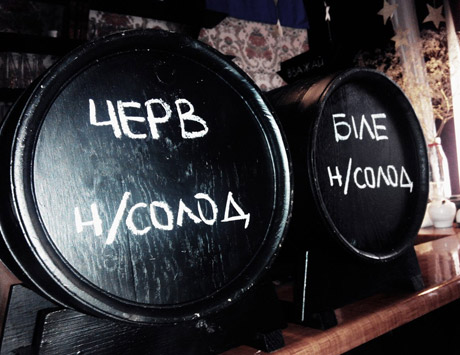 ЧЕРВ
Н/СОЛОД
БІЛЕ
Н/СОЛОД